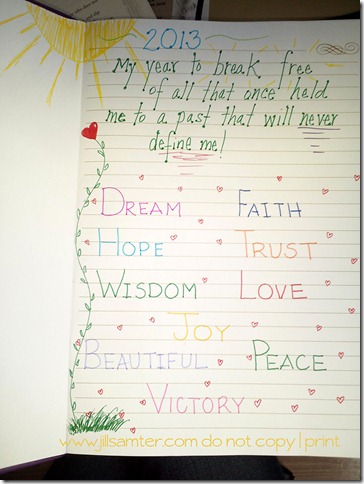 2013
My year to break free
of all that once held
me to a past that will never
define me!
DREAM FAITH
HOPE TRUST
WISDOM LOVE
JOY
BEAUTIFUL PEACE
VICTORY
www.jillsamter.com do not copy | print